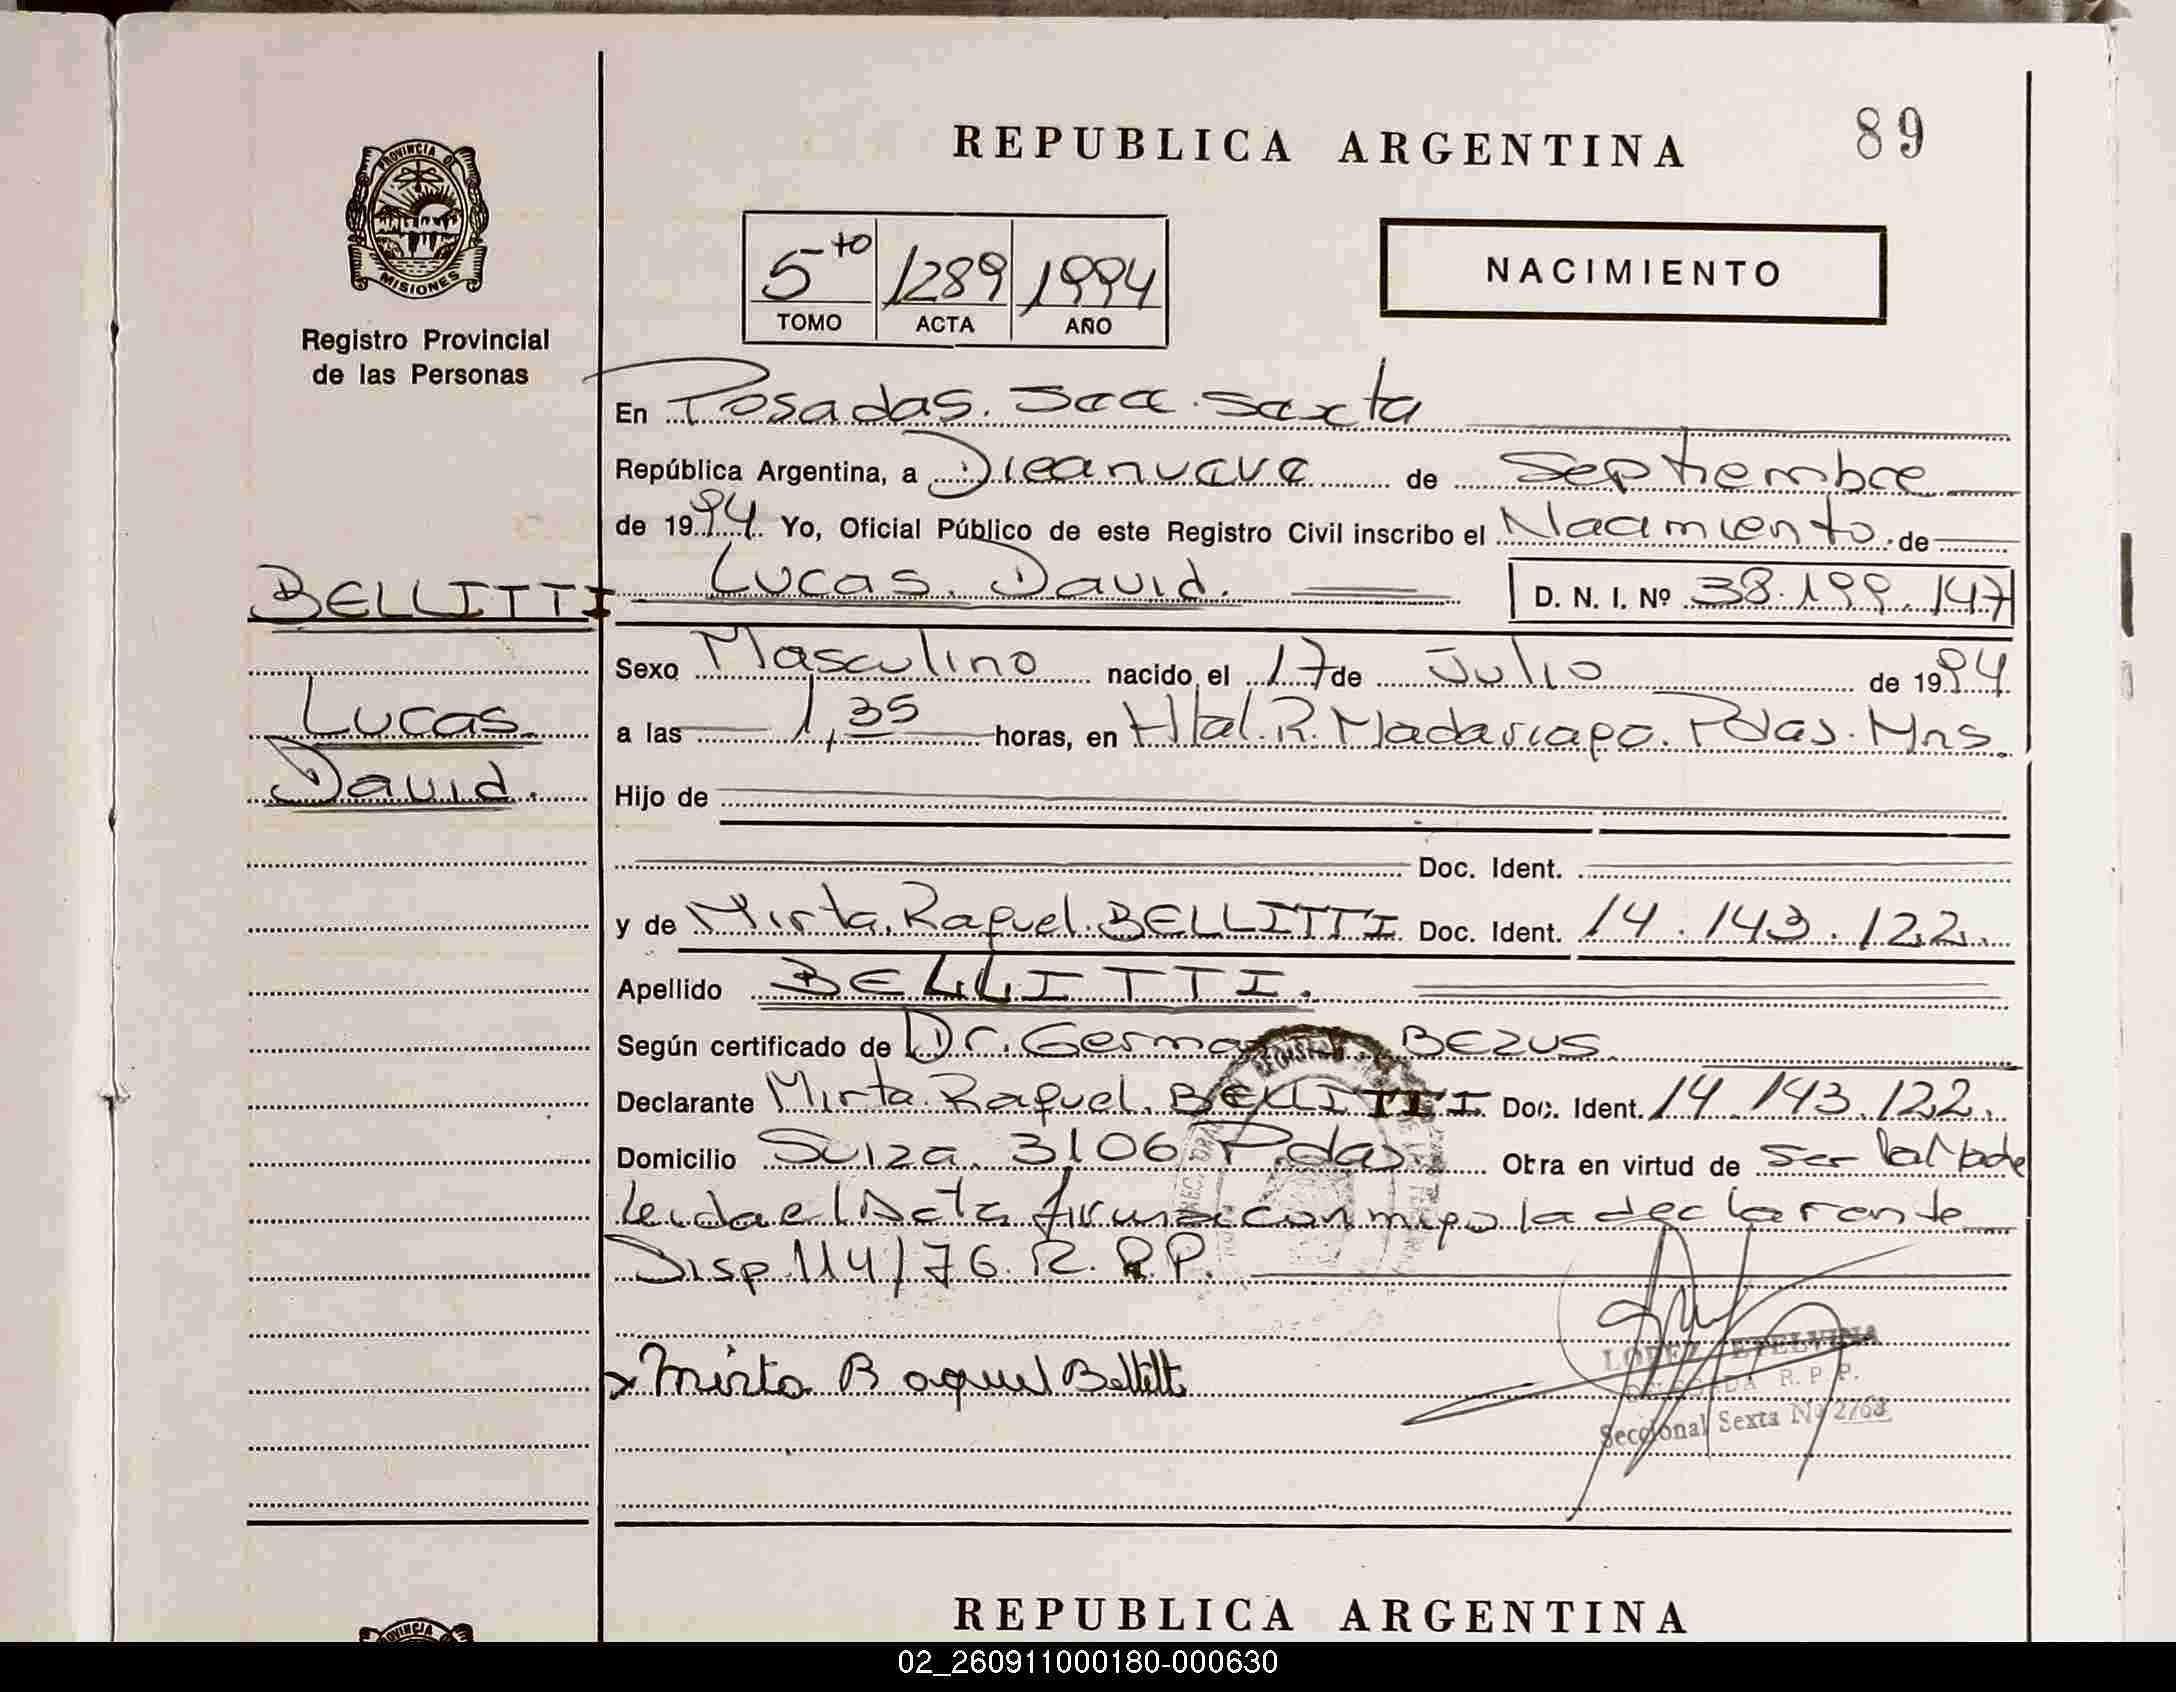 REPUBLICA ARGENTINA
89
PROVINCIA DE
MISIONES
Registro Provincial
de las Personas
5to 1289 1994
TOMO ACTA AÑO
NACIMIENTO
En Posadas. Secc. Sexta
República Argentina, a Diecinueve de Septiembre
de 1994 Yo, Oficial Público de este Registro Civil inscribo el Nacimiento de
BELLITTI
Lucas. David. D. N. I. Nº 38.199.147
Sexo Masculino nacido el 17 de Julio de 1994
Lucas
David.
a las 1,35 horas, en Htal. R. Madariaga. Pdas. Mns.
Hijo de
Doc. Ident.
y de Mirta. Raquel. BELLITTI Doc. Ident. 14.143.122.
Apellido BELLITTI.
Según certificado de Dr. German BEZUS
Declarante Mirta. Raquel. BELLITTI Doc. Ident. 14.143.122.
Domicilio Suiza. 3106 Pdas. Obra en virtud de Ser la Madre
Leida el Acta firma conmigo la declarante
Disp. 114/76. R. P.P.
x Mirta Raquel Bellitti
LOPEZ ETELVINA
DELEGADA R. P. P.
Seccional Sexta Nº 2763
REPUBLICA ARGENTINA
PROVINCIA
02_260911000180-000630